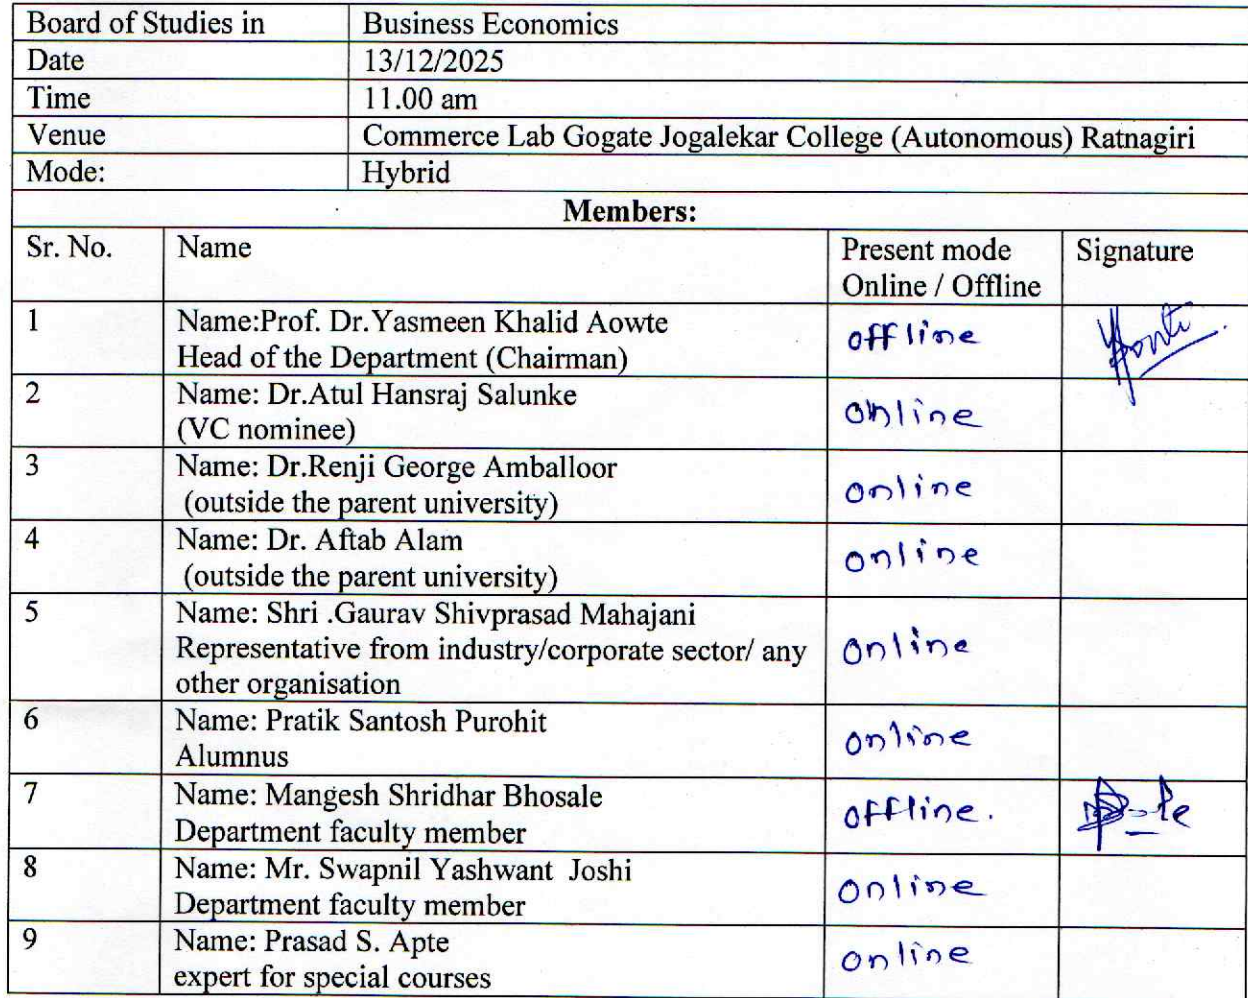 Board of Studies in Business Economics
Date 13/12/2025
Time 11.00 am
Venue Commerce Lab Gogate Jogalekar College (Autonomous) Ratnagiri
Mode: Hybrid
Members:
Sr. No. Name Present mode Signature
Online / Offline
1 Name:Prof. Dr.Yasmeen Khalid Aowte offline
Head of the Department (Chairman)
2 Name: Dr.Atul Hansraj Salunke online
(VC nominee)
3 Name: Dr.Renji George Amballoor online
(outside the parent university)
4 Name: Dr. Aftab Alam online
(outside the parent university)
5 Name: Shri .Gaurav Shivprasad Mahajani
Representative from industry/corporate sector/ any online
other organisation
6 Name: Pratik Santosh Purohit online
Alumnus
7 Name: Mangesh Shridhar Bhosale offline.
Department faculty member
8 Name: Mr. Swapnil Yashwant Joshi online
Department faculty member
9 Name: Prasad S. Apte online
expert for special courses